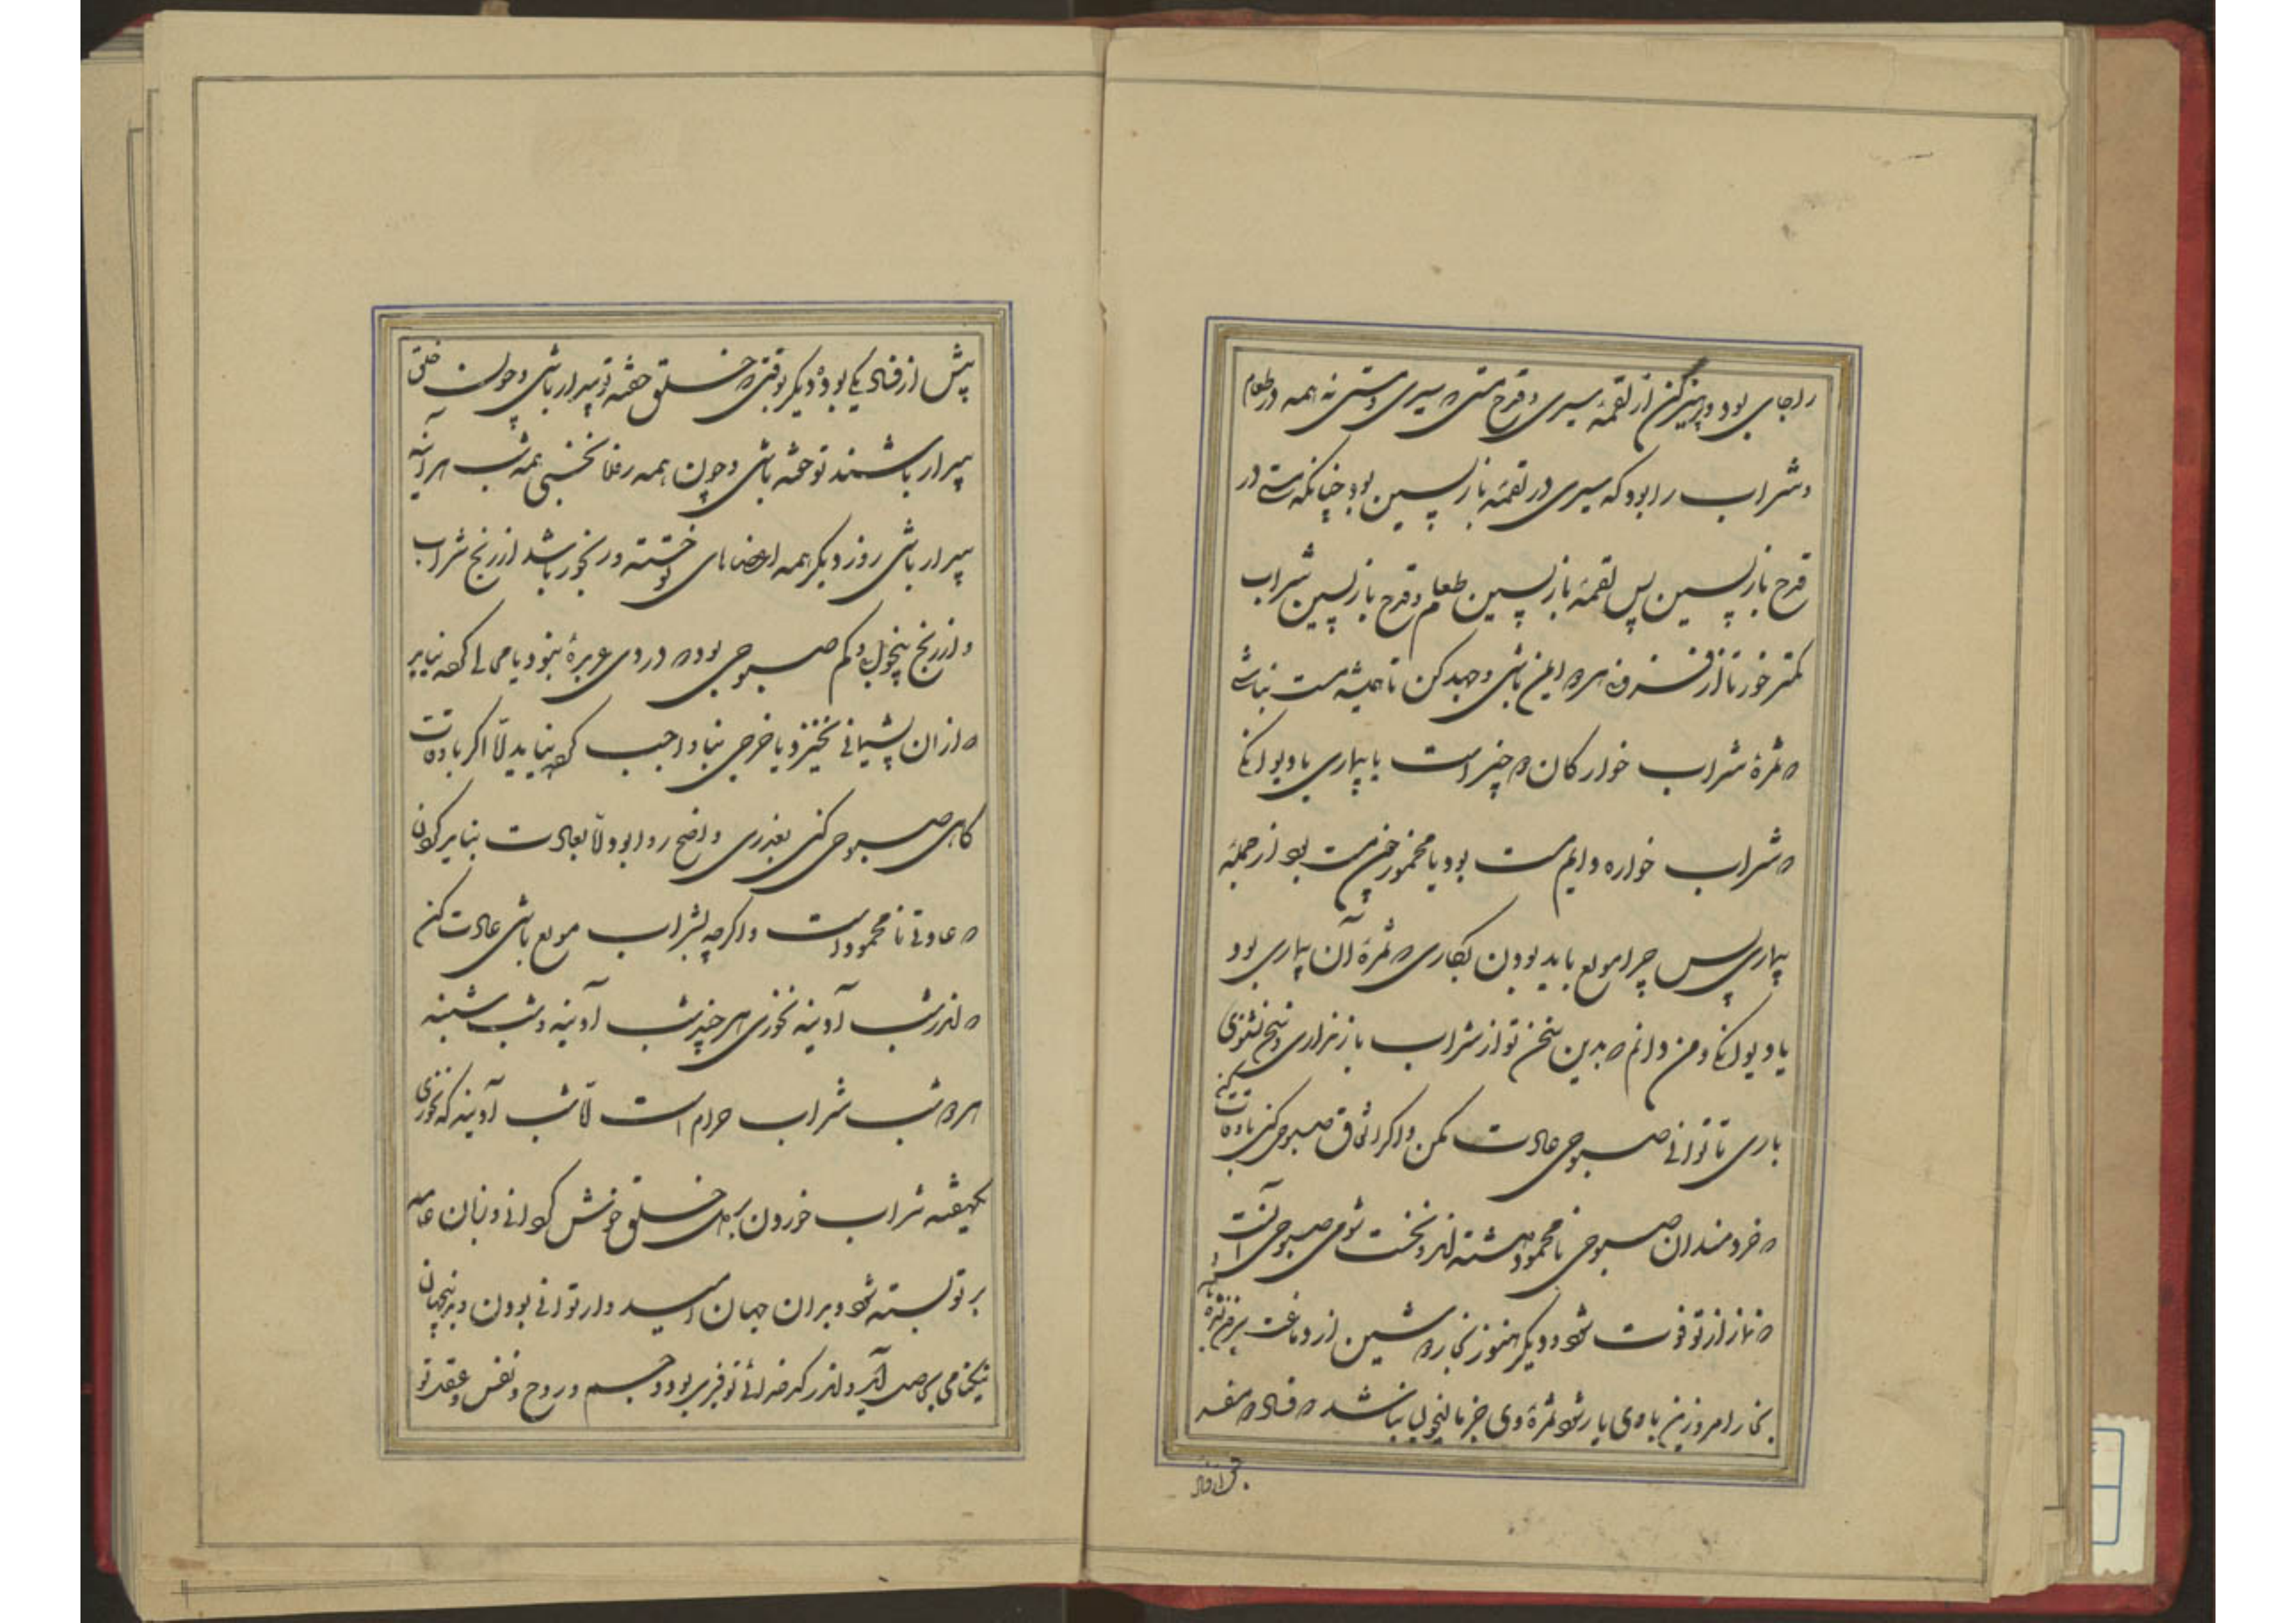 را جای بود و پرهیز کن از لقمهٔ سیری و قدح مستی که سیری و مستی نه همه در طعام
و شراب را بود که سیری در لقمهٔ بازپسین بود چنانکه مستی در
قدح بازپسین پس لقمهٔ بازپسین طعام و قدح بازپسین شراب
کمتر خور تا از فزونی هر دو ایمن باشی و جهد کن تا همیشه مست نباشی
که ثمرهٔ شراب خوارکان دو چیز است یا بیماری یا دیوانکی
که شراب خواره دایم مست بود یا مخمور چون مست بود از جمله
بیماری پس چرا مولع باید بودن بکاری که ثمرهٔ آن بیماری بود
یا دیوانکی و من دانم که بدین سخن تو از شراب باز نداری و پنج نشنوی
باری تا توانی صبوحی عادت مکن و اکر اتفاق صبوحی کنی باوقات کن
که خردمندان صبوحی نامحمود داشته اند و نخست شومی صبوحی آنست
که نماز از تو فوت شود و دیکر هنوز بخار دوشین از دماغت بیرون نشده
بخار امروزین با وی یار شود ثمرهٔ وی جز مالیخولیا نباشد که فساد دو مفسد
پیش از فساد یکی بود و دیکر بوقتی که خلق خفته تو بیدار باشی و چون خلق
بیدار باشند تو خفته باشی و چون همه روز بخسبی همه شب هر آینه
بیدار باشی روز دیکر همه اعضاهای تو خسته و رنجور باشد از رنج شراب
و از رنج بیخوابی و کم صبوحی بود که در وی عربده نبود یا محالی کرده نیاید
که از آن پشیمانی نخیزد یا خرجی بنا واجب کرده نیاید الا اکر باوقات
کاهی صبوحی کنی بعذری واضح روا بود الا بعادت نباید کردن
که عادتی نامحمود است و اکر چه بشراب مولع باشی عادت کن
که اندر شب آدینه نخوری هر چند شب آدینه و شب شنبه
هر دو شب شراب حرام است الا شب آدینه که نخوری
یکهفته شراب خوردن بر دل خلق خوش کردانی و زبان عامه
بر تو بسته شود و بدان جهان امید وار توانی بودن و بدین جهان
نیکنامی بحاصل آید و اندر کدخدائی توفیری بود و جسم و روح و نفس و عقل تو